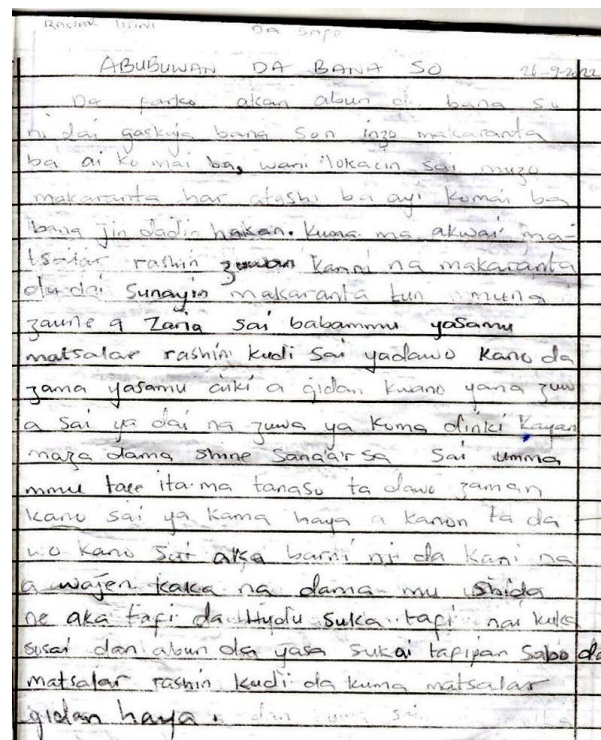 DA SAFE
ABUBUWAN DA BANA SO 26-9-2022
Da farko akan abun da bana so
ni dai gaskiya bana son inzo makaranta
ba ai ko mai ba, wani lokacin sai muzo
makaranta har atashi ba ayi komai ba
bana jin dadin hakan. Kuma ma akwai ma
tsalar rashin zuwan kanni na makaranta
du dai sunayin makaranta tun muna
zaune a Zaria sai babammu yasamu
matsalar rashin kudi sai yadawo Kano da
zama yasamu aiki a gidan kwano yana zuw
a sai ya dai na zuwa ya koma dinki kayan
maza dama shine sana'ar sa sai umma
mmu tace ita ma tanaso ta dawo zaman
kano sai ya kama haya a kanon ta da
wo kano sai aka barni ni da kani na
a wajen kaka na dama mu shida
ne aka tafi da Hudu suka tafi nai kuka
sosai dan abun da yasa sukai tafipan sabo da
matsalar rashin kudi da kuma matsalar
gidan haya. sai